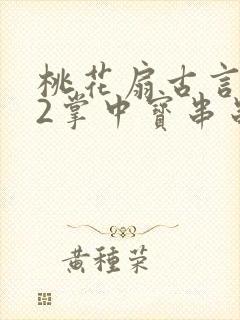 桃花扇古言
2掌中寶串
黄種荣